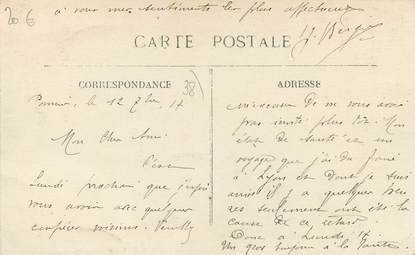 20 €
à vous mes sentiments les plus affectueux
CARTE POSTALE
CORRESPONDANCE
38)
ADRESSE
le 12 7bre 17
Mon Cher Ami
Lundi prochain que j'espère
vous avoir avec quelques
confrères voisins. Veuillez
m'excuser de ne vous avoir
pas invité plus tôt. Mon
état de santé et un
voyage que j'ai du faire
à Lyon et dont je suis
arrivé il y a quelques heu
res seulement ont été la
cause de ce retard
Donc à Lundi 17.
Un gros bonjour à la